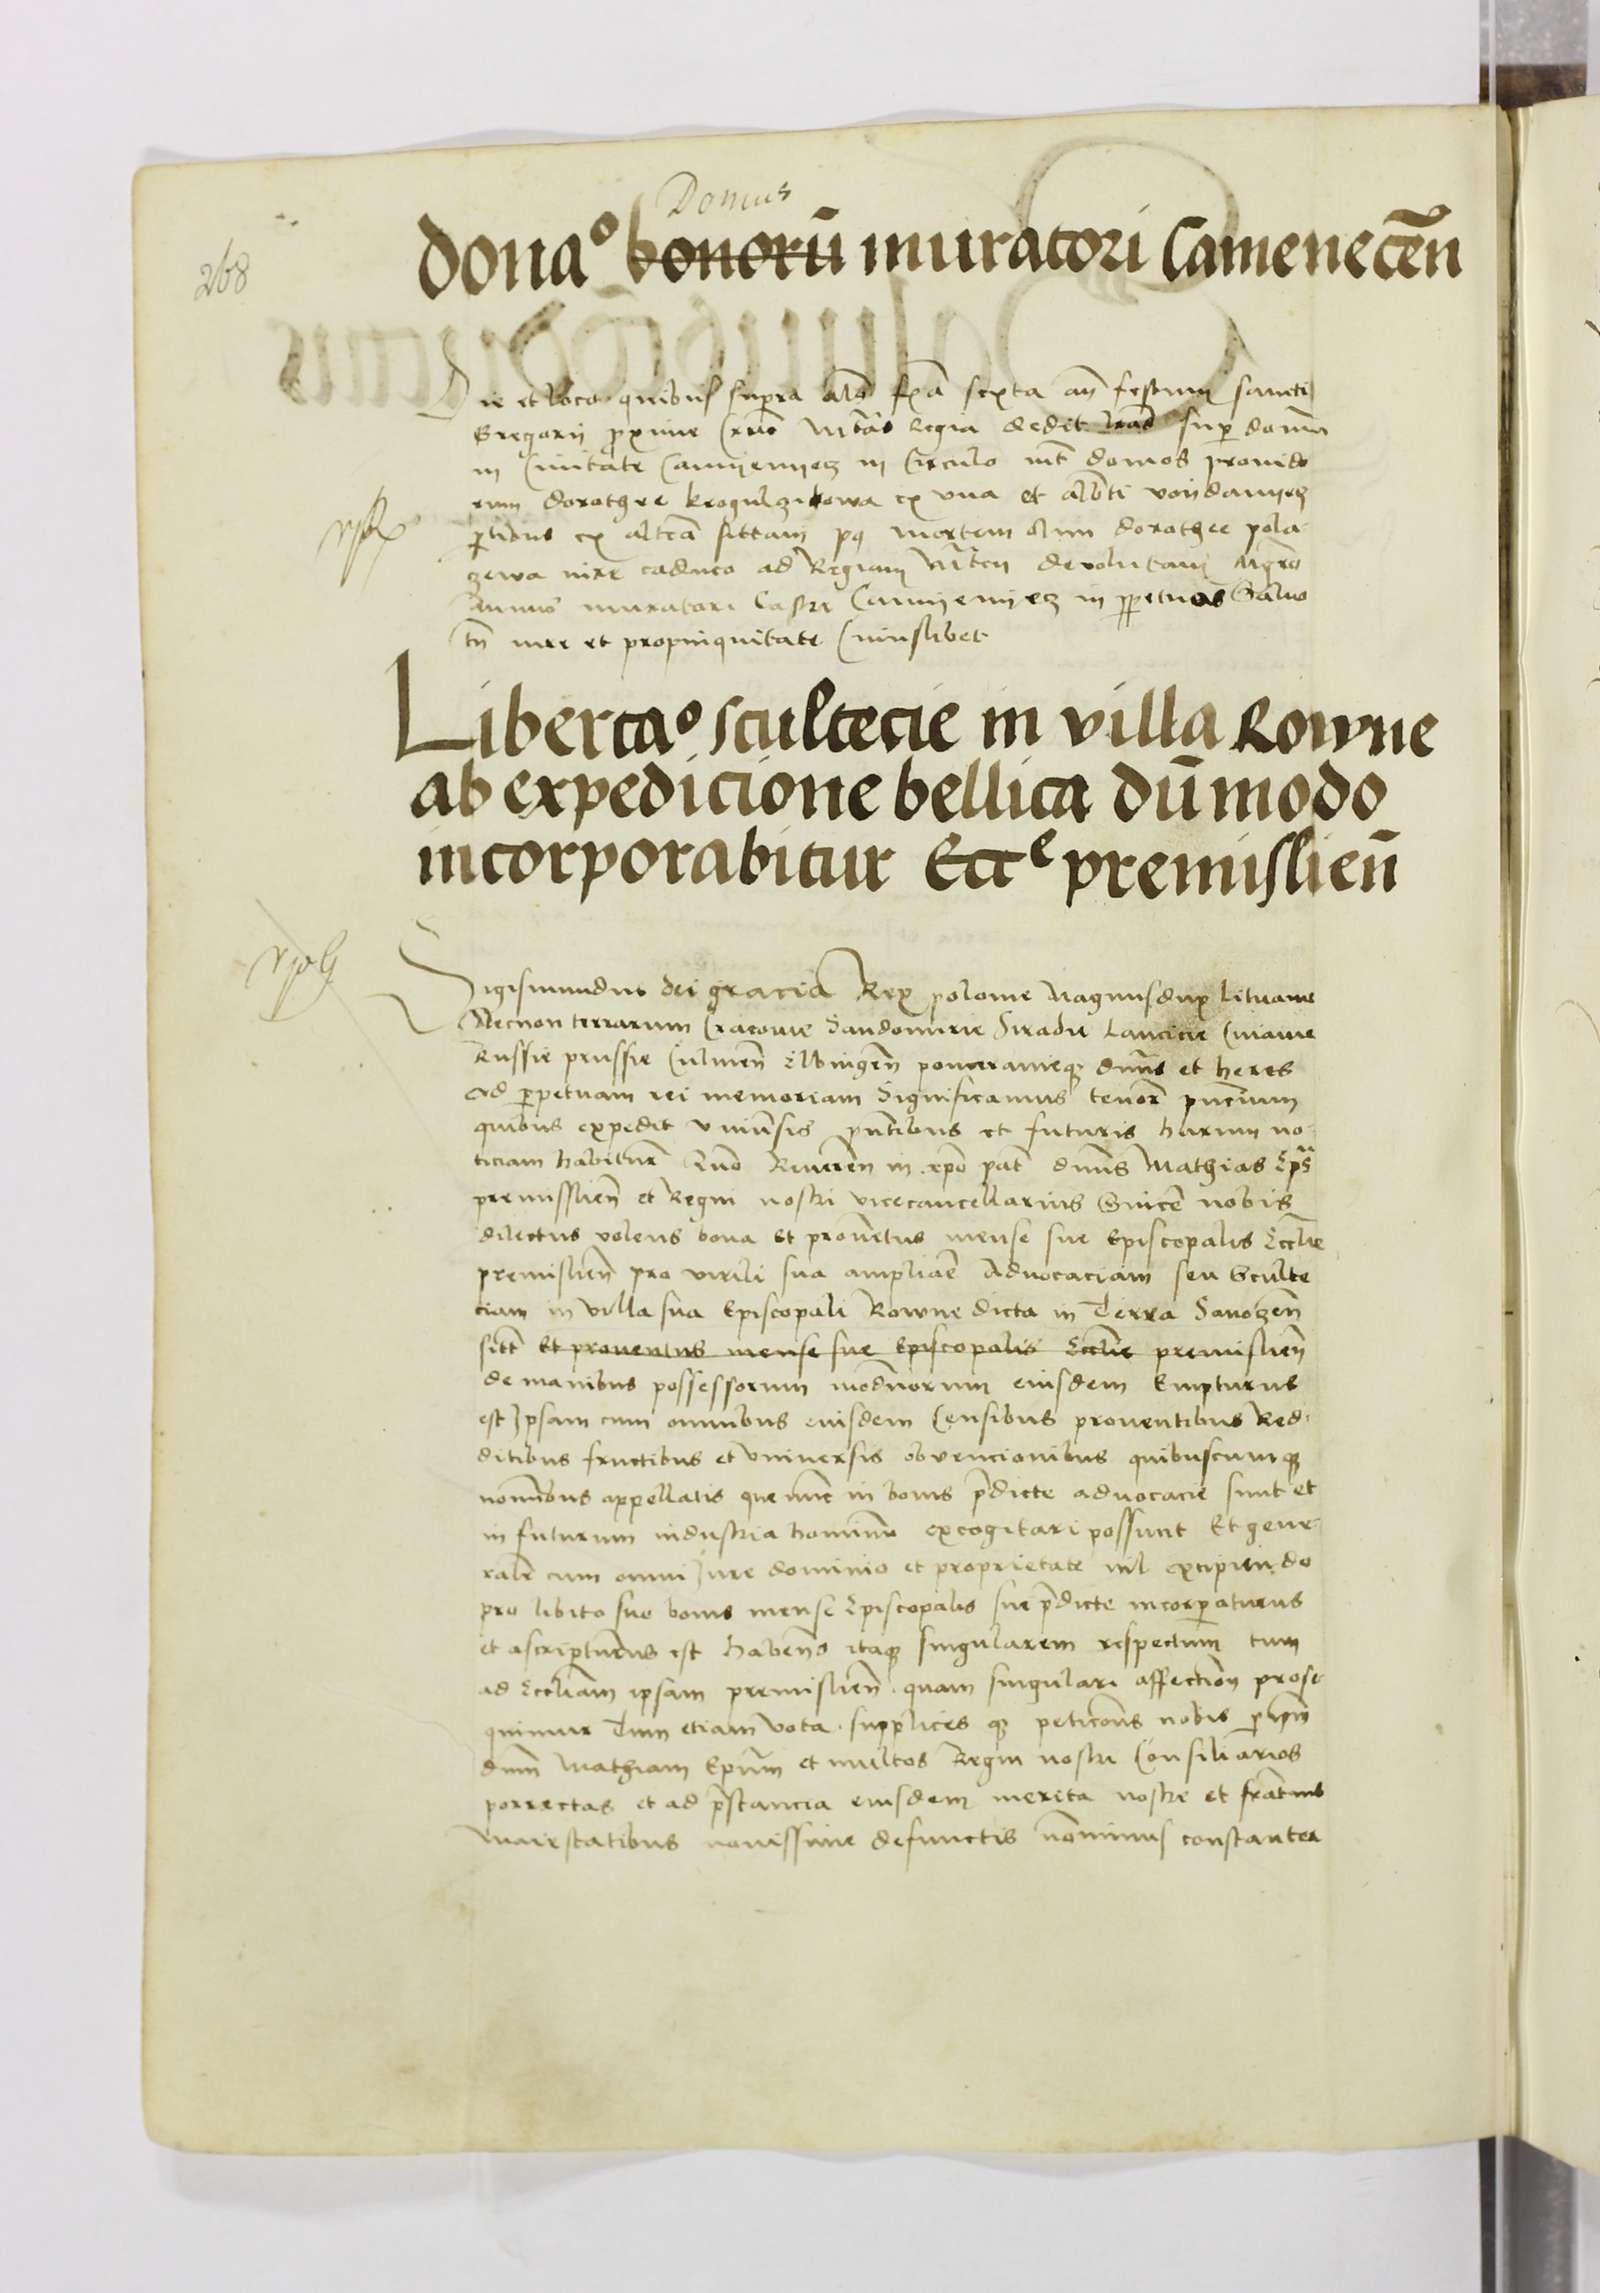 268
Domus
donaº bonorū muratori Camenecēn
Die et loco quibus supra als fria sexta an festum sancti
Gregorii proxime Mtas Regia dedit lras super domum
in Civitate Camyenyecz in Circulo int domos provido
rum dorothee et Alberti
ptibus ex altera sittam pq mortem olim dorothee pola
zewa iure caduco ad Regiam Mtem devolutam Mgro
muratori Castri Camyenyecz in ppetuos Salvo
tn iure et propinquitate Cuiuslibet
Libertaº scultecie in villa Rowne
ab expedicione bellica dū modo
incorporabitur Eccᵉ premislien̄
Sigismundus dei gracia Rex polonie Magnusdux lituanie
Necnon terrarum Cracovie Sandomirie Siradie Lancicie Cuiavie
Russie prussie Culmen̄ Elbingen̄ pomeranieq dnus et heres
Ad perpetuam rei memoriam Significamus tenore pncium
quibus expedit universis pntibus et futuris harum no-
ticiam habitur Quo Reveren in xpo pat dnus Mathias Eps
premislien̄ et Regni nostri vicecancellarius Sincē nobis
dilectus volens bona et proventus mense sue Episcopalis Ecclie
premislien̄ pro virili sua ampliare Advocaciam seu Sculte
ciam in villa sua Episcopali Rowne dicta in Terra Sanocen̄
sitt et proventus mense sue Episcopalis Ecclie premislien̄
de manibus possessorum modnorum eiusdem Empturus
est Ipsam cum omnibus eiusdem Censibus proventibus Red-
ditibus fructibus et universis obvencionibus quibuscumq
nominibus appellatis que nunc in bonis pdicte advocacie sunt et
in futurum industria hominum excogitari possunt Et gene-
raliter cum omni Jure dominio et proprietate nil excipiendo
pro libito suo bonis mense Episcopalis sue pdicte incorporaturus
et ascripturus est habentes itaq singularem respectum tum
ad Eccliam ipsam premislien̄ quam singulari affection prose-
quimur Tum etiam vota supplices q peticones nobis per
dnm Mathiam Epum et multos Regni nostri Consiliarios
porrectas et ad prestancia eiusdem merita nostre et fratrum
Maiestatibus novissime defunctis constanter